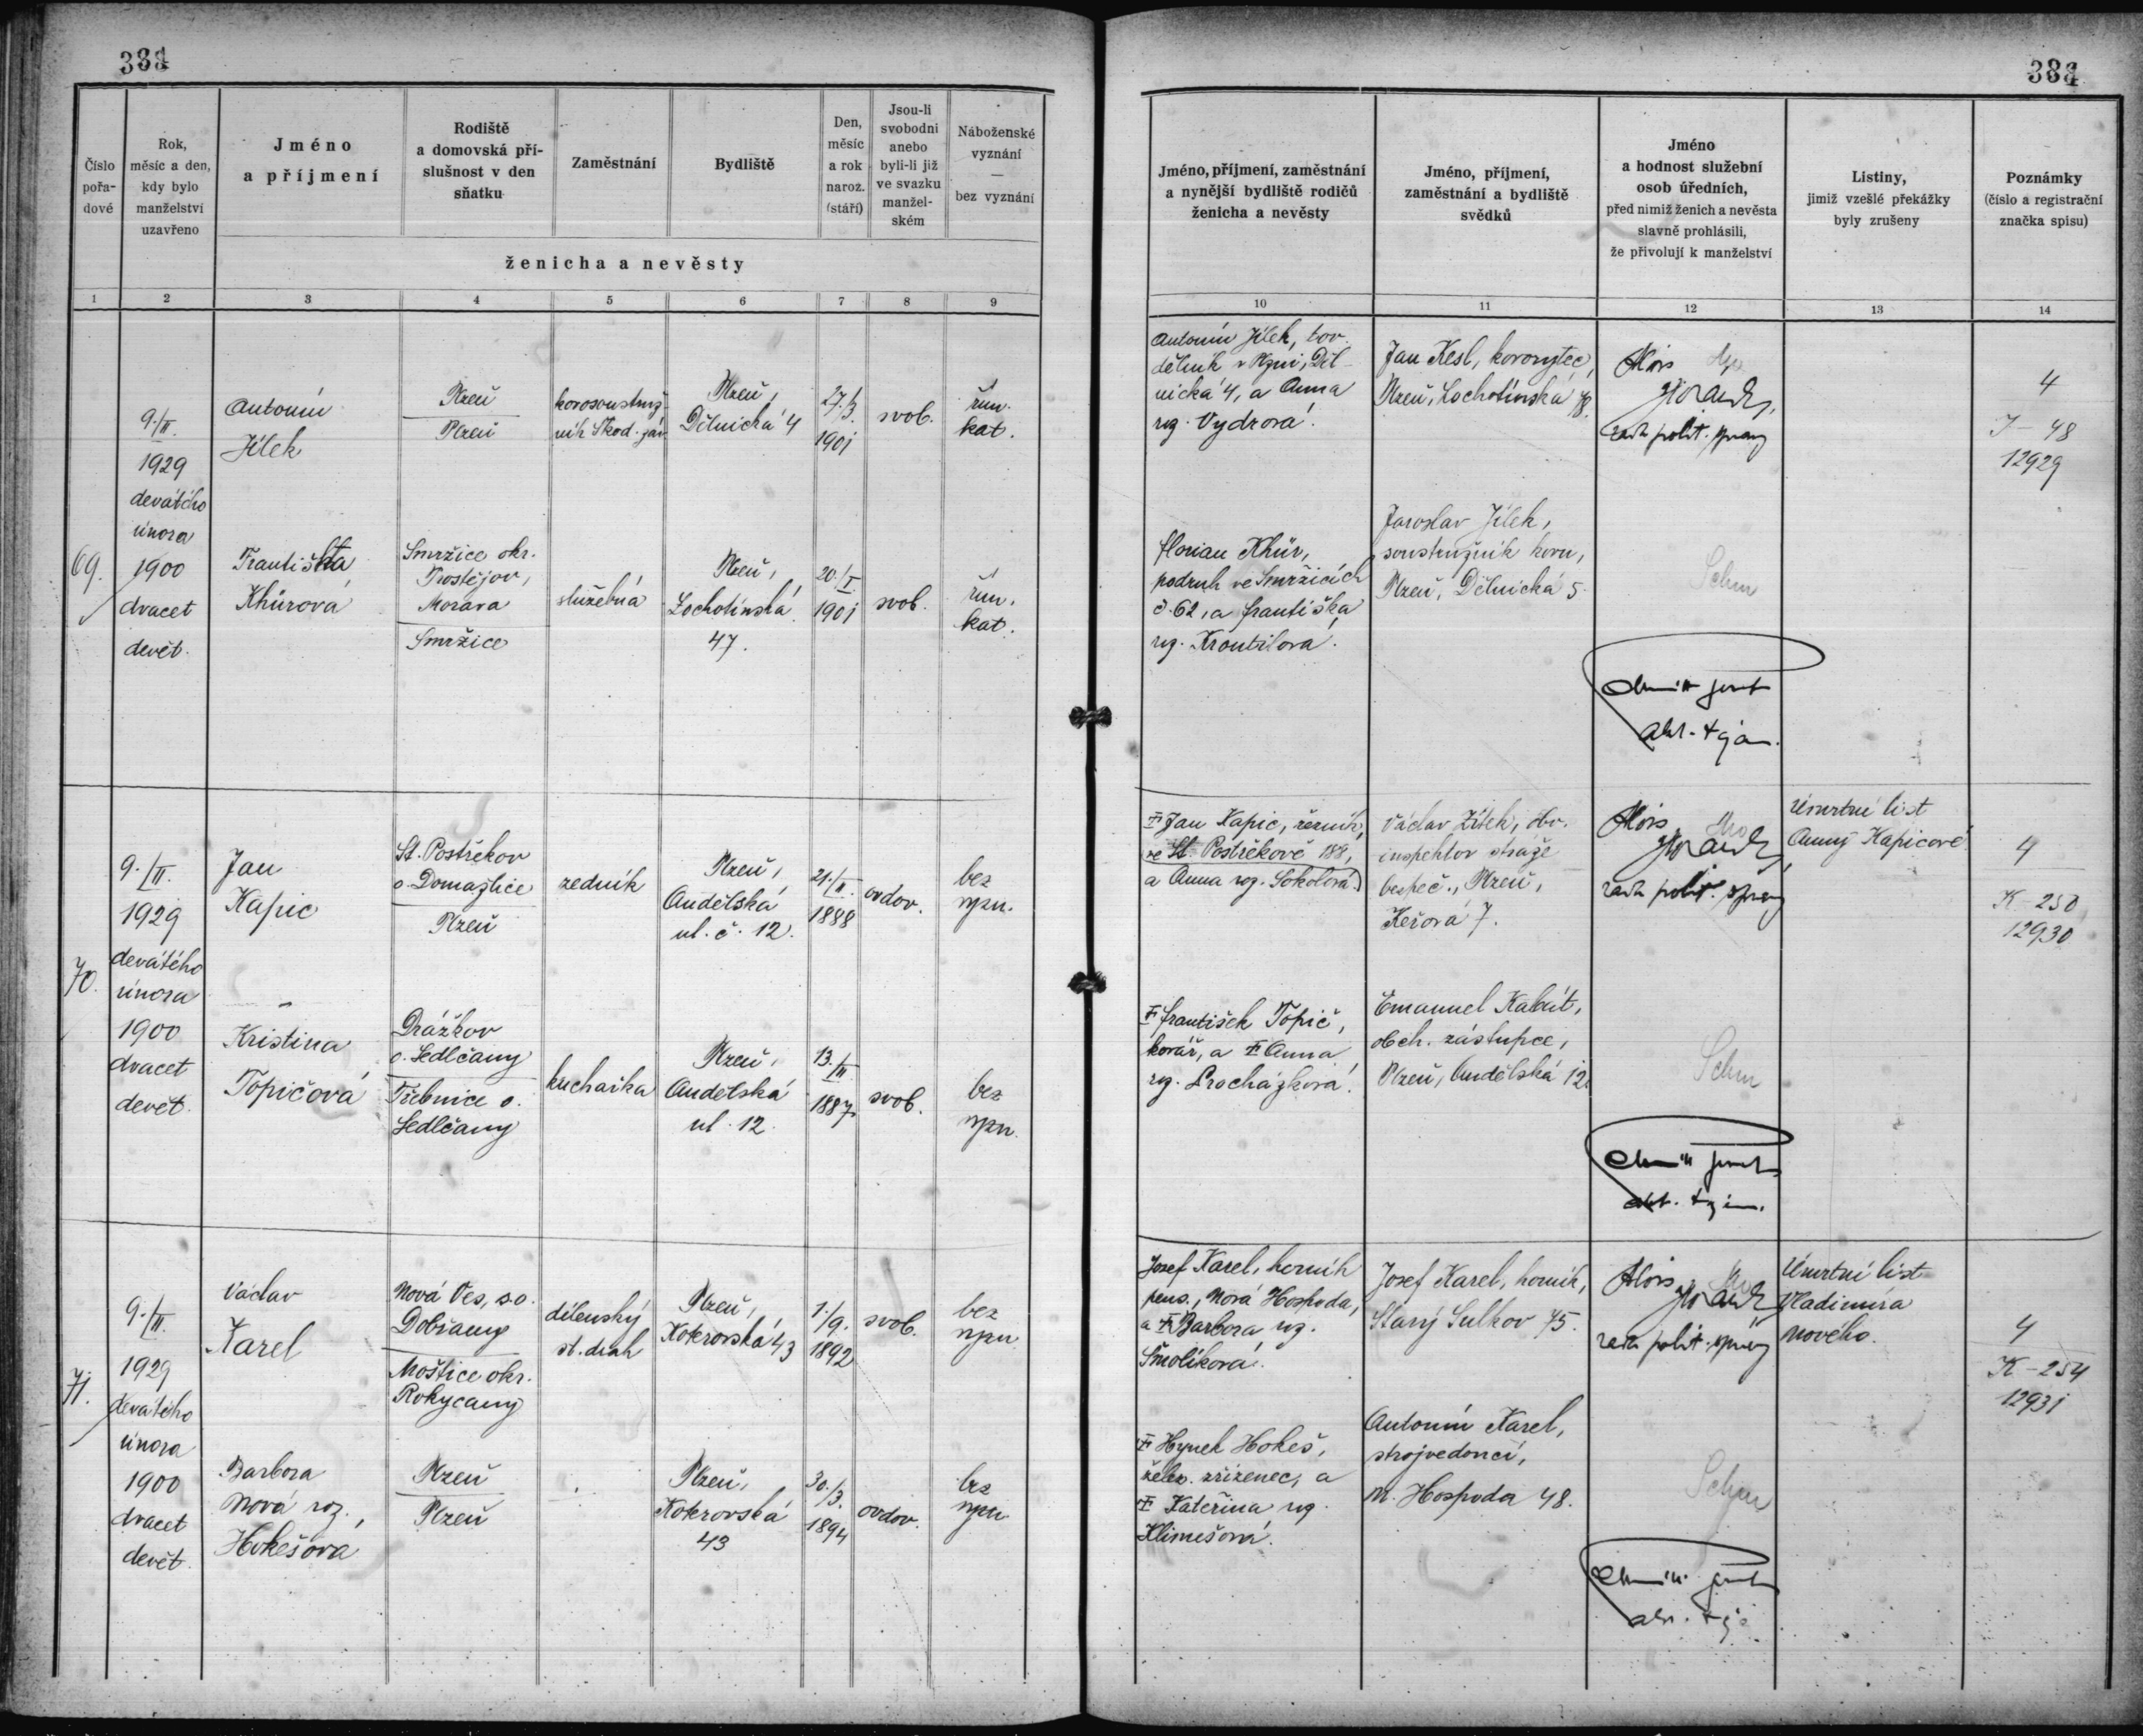 Číslo
pořa-
dové
Rok,
měsíc a den,
kdy bylo
manželství
uzavřeno
Jméno
a příjmení
Rodiště
a domovská pří-
slušnost v den
sňatku
Zaměstnání
Bydliště
Den,
měsíc
a rok
naroz.
(stáří)
Jsou-li
svobodni
anebo
byli-li již
ve svazku
manžel-
ském
Náboženské
vyznání
—
bez vyznání
ženicha a nevěsty
1 2 3 4 5 6 7 8 9
69.
9./II.
1929
devátého
února
1900
dvacet
devět.
Antonín
Jílek
Plzeň
Plzeň
kovosoustruž-
ník Škod. záv.
Plzeň,
Dělnická 4
27./3.
1901
svob.
řím.
kat.
Františka
Khůrová
Smržice okr.
Prostějov,
Morava
Smržice
služebná
Plzeň,
Lochotínská
47.
20./I.
1901
svob.
řím.
kat.
70.
9./II.
1929
devátého
února
1900
dvacet
devět.
Jan
Kapic
St. Postřekov
o. Domažlice
Plzeň
zedník
Plzeň,
Andělská
ul. č. 12.
21./II.
1888
ovdov.
bez
vyzn.
Kristina
Topičová
Drážkov
o. Sedlčany
Třebnice o.
Sedlčany
kuchařka
Plzeň,
Andělská
ul. 12.
13./II
1887
svob.
bez
vyzn.
71.
9./II.
1929
devátého
února
1900
dvacet
devět.
Václav
Karel
Nová Ves, s.o.
Dobřany
Moštice okr.
Rokycany
dílenský
st. drah
Plzeň,
Koterovská 43
1./9.
1892
svob.
bez
vyzn.
Barbora
Nová roz.,
Hokešova
Plzeň
Plzeň
Plzeň,
Koterovská
43
30./3.
1894
ovdov.
bez
vyzn.
Jméno, příjmení, zaměstnání
a nynější bydliště rodičů
ženicha a nevěsty
Jméno, příjmení,
zaměstnání a bydliště
svědků
Jméno
a hodnost služební
osob úředních,
před nimiž ženich a nevěsta
slavně prohlásili,
že přivolují k manželství
Listiny,
jimiž vzešlé překážky
byly zrušeny
Poznámky
(číslo a registrační
značka spisu)
10 11 12 13 14
Antonín Jílek, tov.
dělník v Plzni, Děl-
nická 4, a Anna
roz. Vydrová.
Jan Kesl, kovorytec,
Plzeň, Lochotínská
Alois
rada polit. správy
4
J - 48
12929
Florian Khůr,
podruh ve Smržicích
č. 62, a Františka
roz. Kroutilova.
Jaroslav Jílek,
soustružník kovu,
Plzeň, Dělnická 5.
Schm
Jan Kapic, řezník,
ve St. Postřekově 188,
a Anna roz. Sokolová.
Václav Žítek, obv.
inspektor stráže
bezpeč., Plzeň,
Keřová 7.
Alois
rada polit. správy
Úmrtní list
Anny Kapicové
4
K - 250
12930
František Topič,
kovář, a Anna
roz. Procházková.
Emanuel Kabát,
obch. zástupce,
Plzeň, Andělská 12.
Schm
Josef Karel, horník
pens., Nová Hospoda,
a Barbora roz.
Smolíková.
Josef Karel, horník,
Starý Sulkov 75.
Alois
rada polit. správy
Úmrtní list
Vladimíra
Nového.
4
K - 254
12931
Hynek Hokeš,
želez. zřízenec, a
Kateřina roz.
Klimešová.
Antonín Karel,
strojvedoucí,
N. Hospoda 48.
Schm